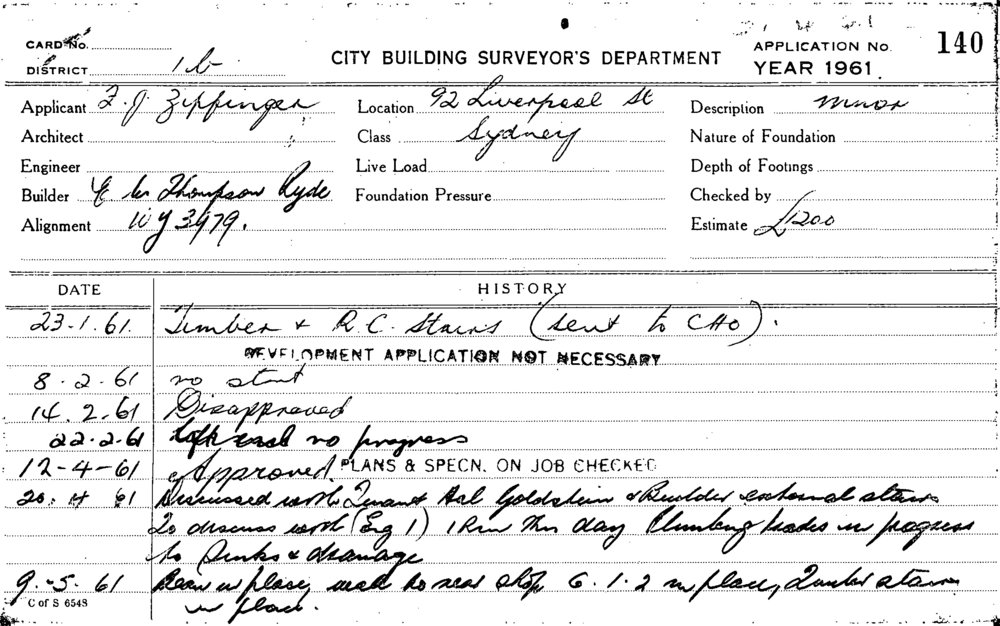 CARD No.
DISTRICT 1b
CITY BUILDING SURVEYOR'S DEPARTMENT
APPLICATION No. 140
YEAR 1961
Applicant F. J. Zipfinger
Location 92 Liverpool St
Description minor
Architect
Class Sydney
Nature of Foundation
Engineer
Live Load
Depth of Footings
Builder Thompson Ryde
Foundation Pressure
Checked by
Alignment WY 3479.
Estimate £1200
DATE HISTORY
23.1.61. Timber & R.C. Stairs (sent to CHO).
DEVELOPMENT APPLICATION NOT NECESSARY
8.2.61 no start
14.2.61 Disapproved
22.2.61 no progress
12-4-61 Approved. PLANS & SPECN. ON JOB CHECKED
20.4.61 Discussed with Tenant Hal Goldstein & Builder external stairs
To discuss with (Eng 1) this day Plumbing trades in progress
to Sinks & drainage
9.-5.61 Beam in place, wall to rear shop 6.1.2 in place, Timber stairs
in place.
C of S 6548